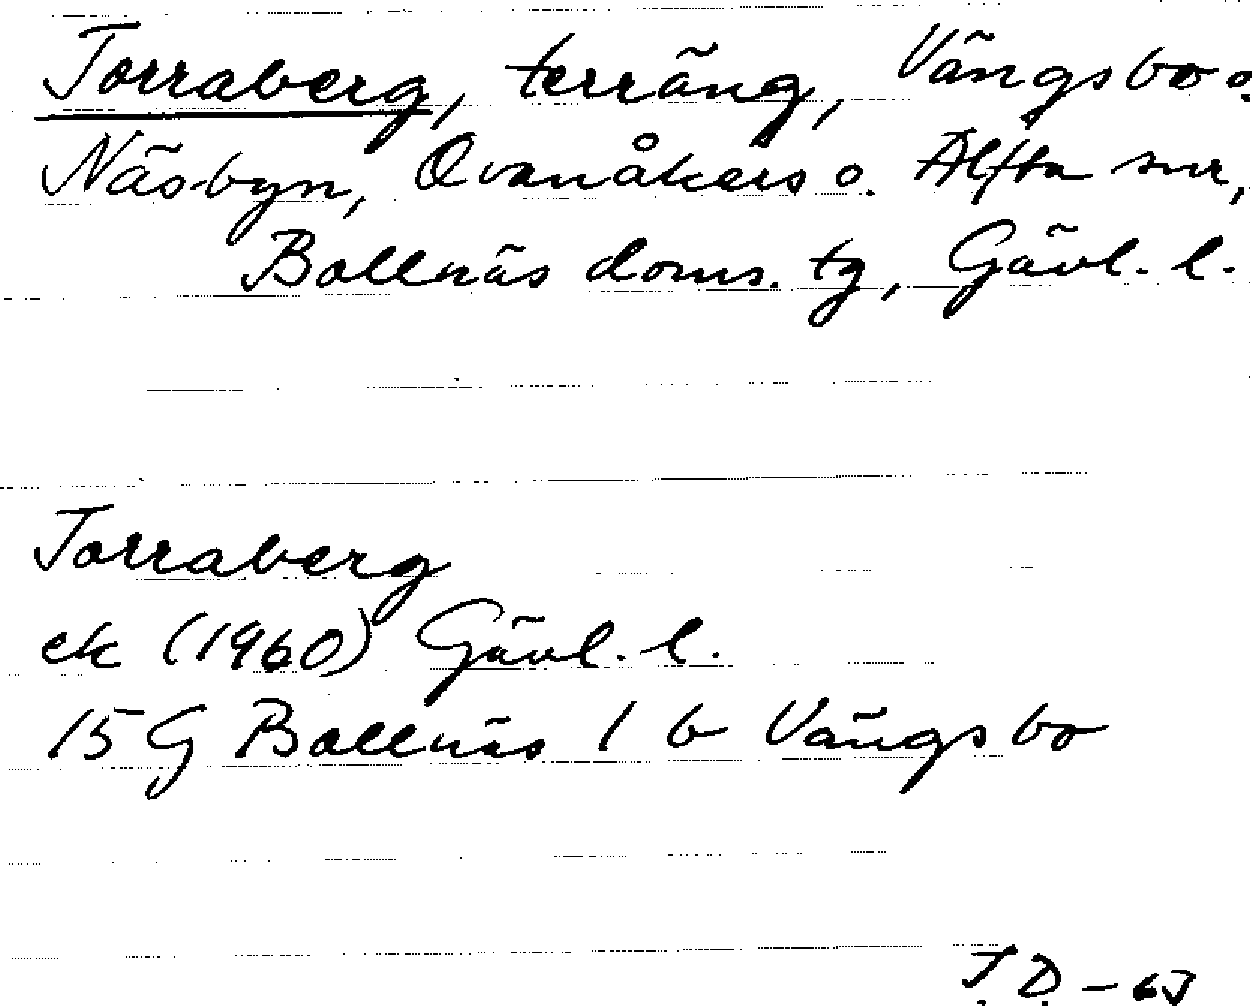 Torraberg, terräng, Vängsbo o.
Näsbyn, Ovanåkers o. Alfta snr,
Bollnäs doms. tg, Gävl. l.
Torraberg
ek (1960) Gävl. l.
15 G Bollnäs 1 b Vängsbo